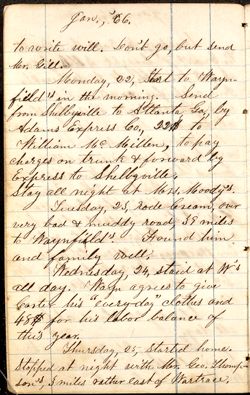 Jan., '66.
to write will. Don't go, but send
Mr. Gill.
Monday, 22, Start to Wayn-
field's in the morning. Send
from Shelbyville to Atlanta, Ga., by
Adams Express Co., 22$ to
William McMillen, to pay
charges on trunk & forward by
Express to Shelbyville.
Stay all night at Mrs. Moody's.
Tuesday, 23, rode over
very bad & muddy road, 39 miles
to Waynfield's. Found him
and family well.
Wednesday, 24, staid at W's
all day. Wayn agrees to give
his "everyday" clothes and
48$ for his labor balance of
this year.
Thursday, 25, started home.
Stopped at night with Mr. Geo. Thomp-
son's, 3 miles rather east of Wartrace.